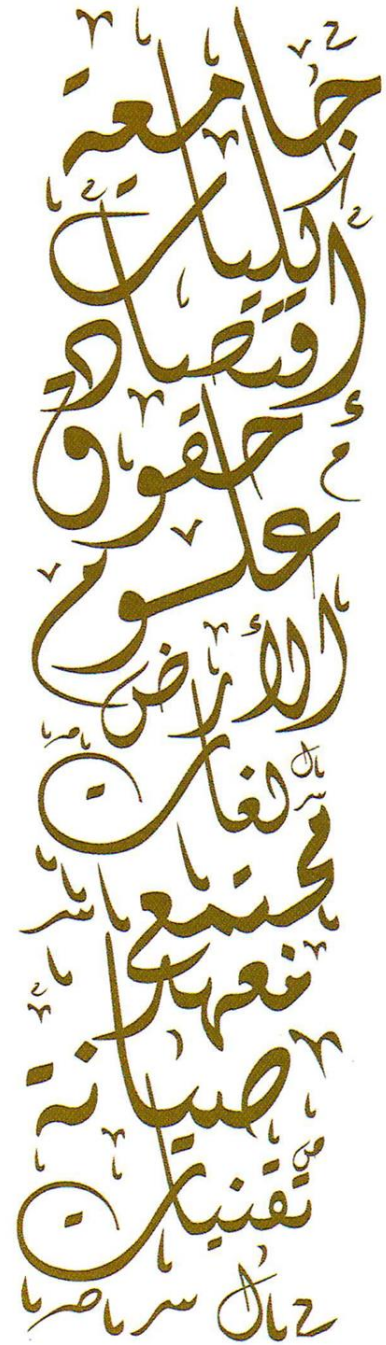 جامعة
كليات
إقتصاد
حقوق
علوم
الأرض
لغات
مجتمع
معهد
صيانة
تقنيات